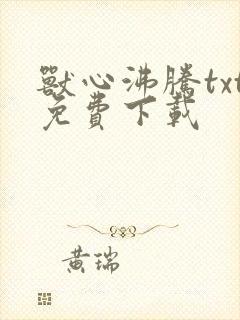 獸心沸騰txt
免費下載
黃瑞